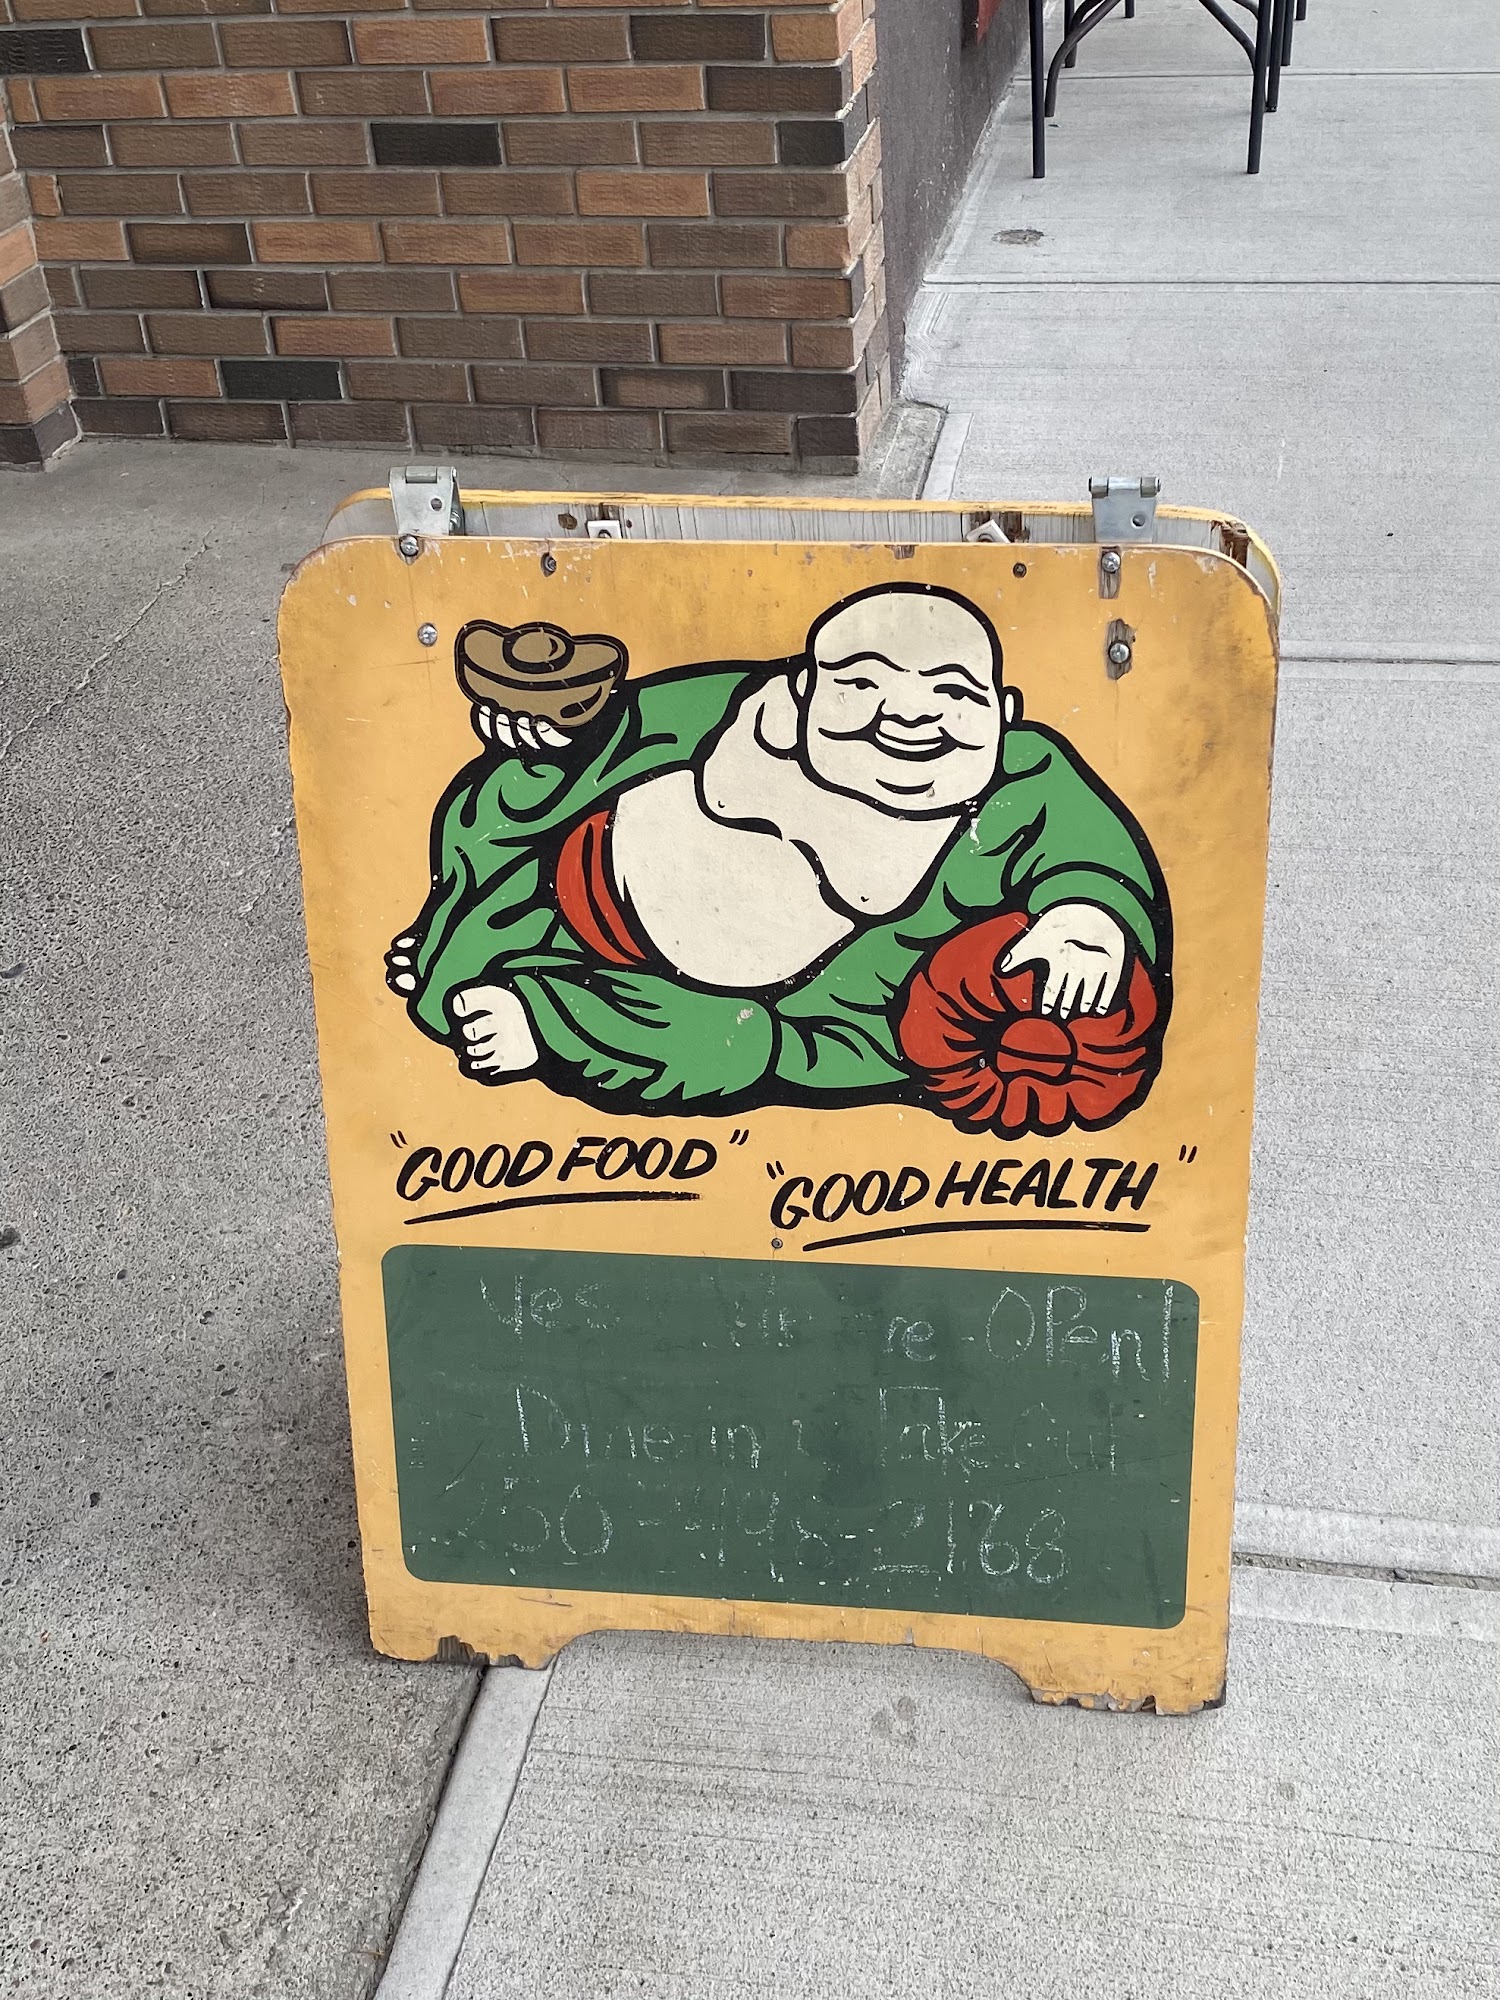 "GOOD FOOD" "GOOD HEALTH"
Yes We are OPen!
Dine-in & Take Out
250-448-2168